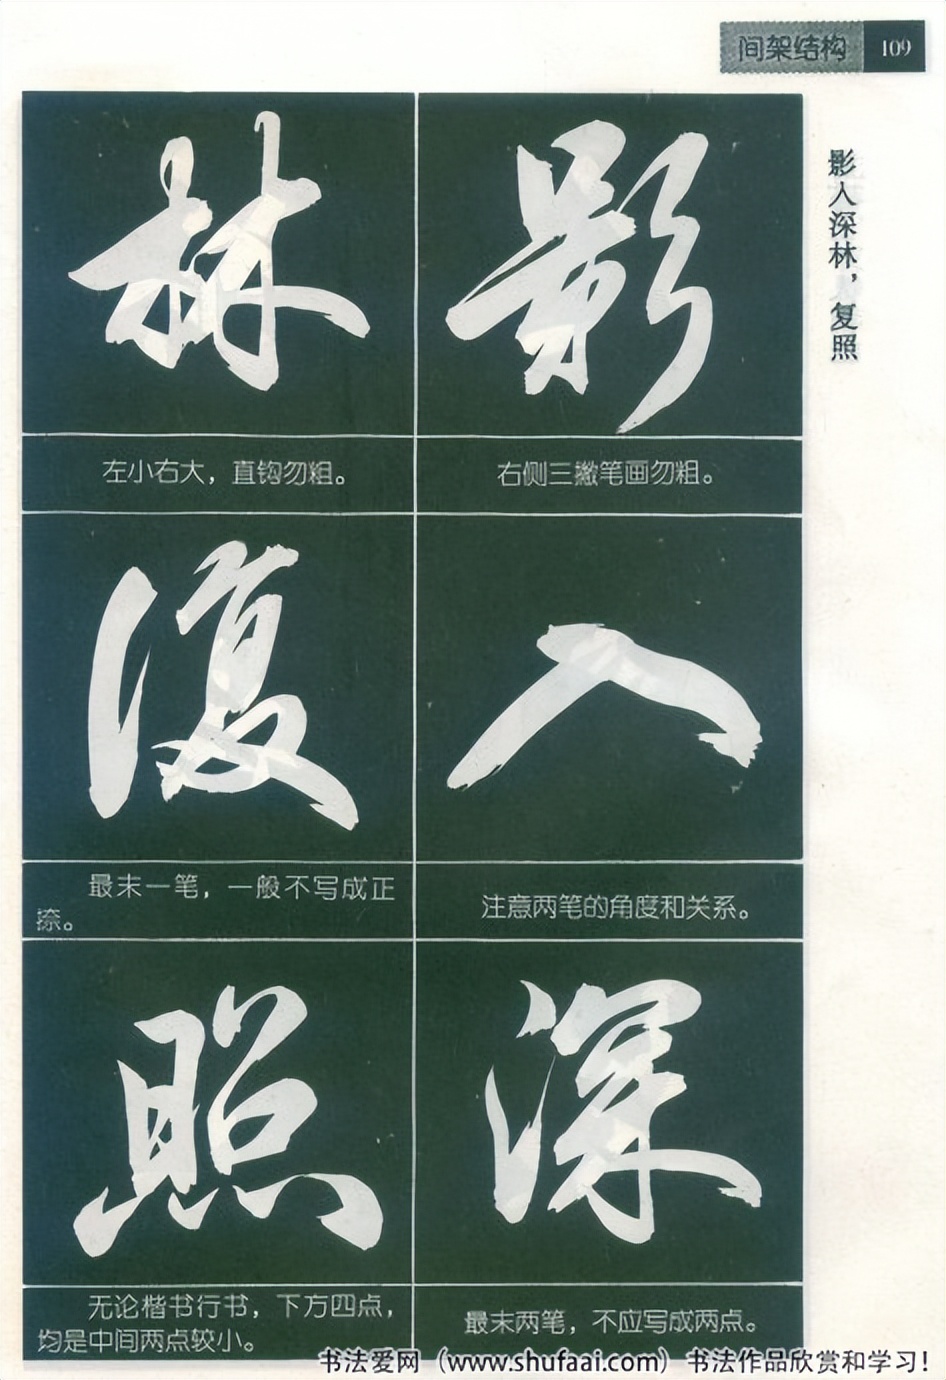 间架结构 109
影入深林，复照
影
右侧三撇笔画勿粗。
入
注意两笔的角度和关系。
深
最末两笔，不应写成两点。
林
左小右大，直钩勿粗。
復
最末一笔，一般不写成正
捺。
照
无论楷书行书，下方四点，
均是中间两点较小。
书法爱网（www.shufaai.com）书法作品欣赏和学习！